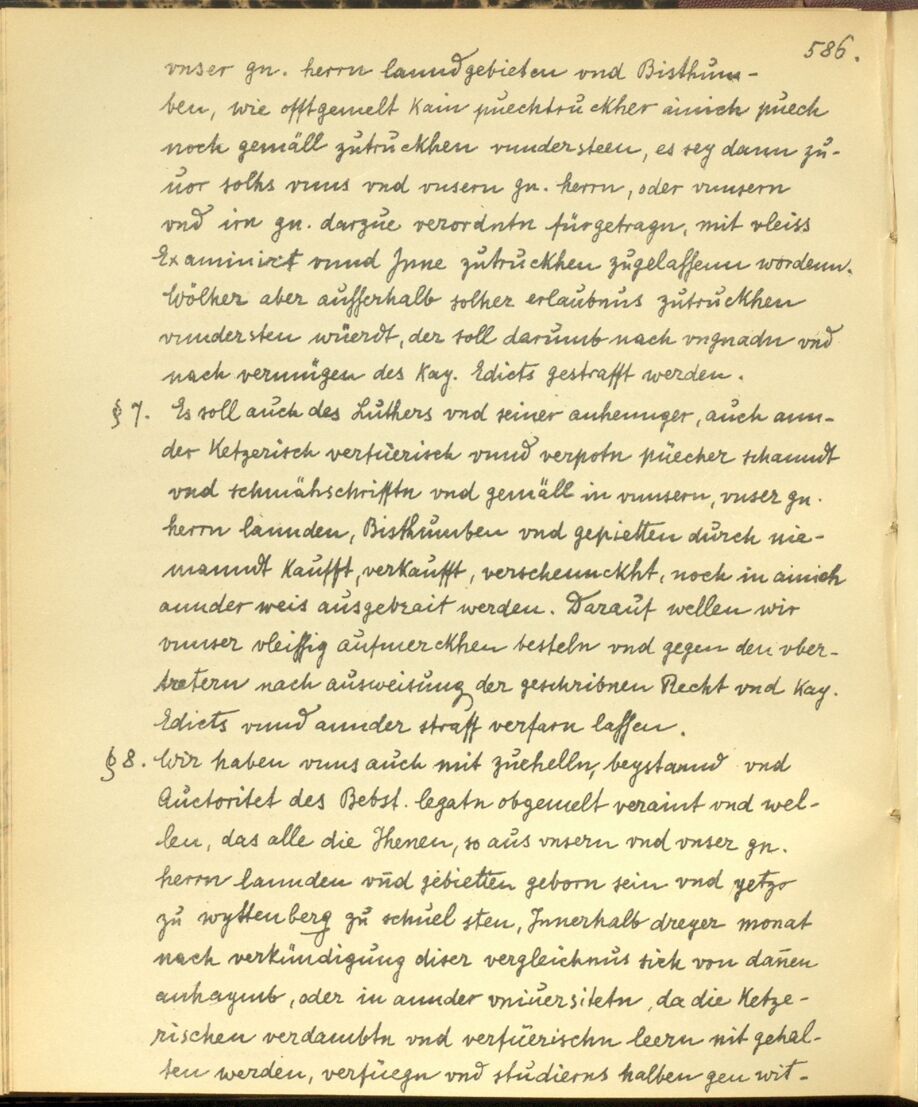 586.
vnser gn. herrn lanndgebieten vnd Bisthum-
ben, wie offtgemelt kain puechtruckher ainich puech
noch gemäll zutruckhen vundersteen, es sey dann zu-
uor solhs vnns vnd vnsern gn. herrn, oder vnnsern
vnd irn gn. darzue verordntn fürgetragn, mit vleiss
Examinirt vnnd Inne zutruckhen zugelassenn wordenn.
Wölher aber ausserhalb solher erlaubnus zutruckhen
vundersten wüerdt, der soll darumb nach vngnadn vnd
nach vermügen des Kay. Edicts gestrafft werden.
§ 7. Es soll auch des Luthers vnd seiner anhennger, auch ann-
der Ketzerisch verfüerisch vnnd verpotn püecher schanndt
vnd schmähschrifftn vnd gemäll in vnnsern, vnser gn.
herrn lannden, Bisthumben vnd gepietten durch nie-
manndt kaufft, verkaufft, verschennckht, noch in ainich
annder weis ausgebrait werden. Darauf wellen wir
vnnser vleissig aufmerckhen besteln vnd gegen den vber-
tretern nach ausweisung der geschribnen Recht vnd Kay.
Edicts vnnd annder straff verfarn lassen.
§ 8. Wir haben vnns auch mit zuehelln, beystannd vnd
Auctoritet des Bebst. legatn obgemelt veraint vnd wel-
len, das alle die Jhenen, so aus vnsern vnd vnser gn.
herrn lannden vñd gebietten geborn sein vnd yetzo
zu wyttenberg zu schuel sten, Innerhalb dreyer monat
nach verkündigung diser vergleichnus sich von dañen
anhaymb, oder in annder vniuersitetn, da die Ketze-
rischen verdambtn vnd verfüerischn leern nit gehal-
ten werden, verfüegn vnd studierns halben gen wit-